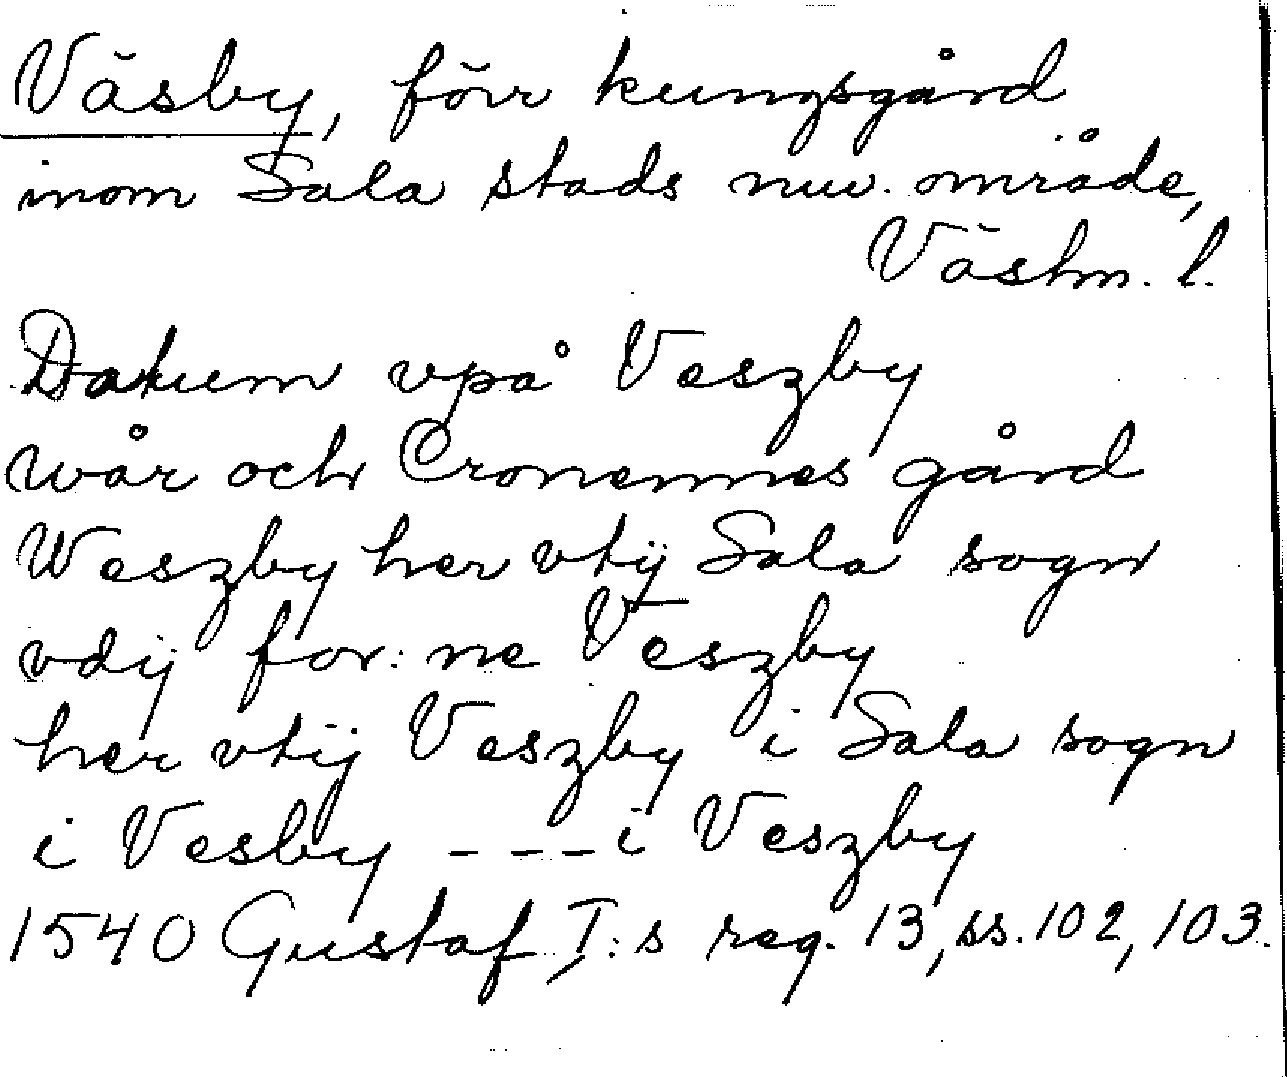 Väsby, förr kungsgård
inom Sala stads nuv. område,
Västm. l.
Datum vpå Veszby
wår och Cronennes gård
Weszby her vtij Sala sogn
vdij for:ne Veszby
her vtij Veszby i Sala sogn
i Vesby - - - i Veszby
1540 Gustaf I:s reg. 13, ss. 102, 103.